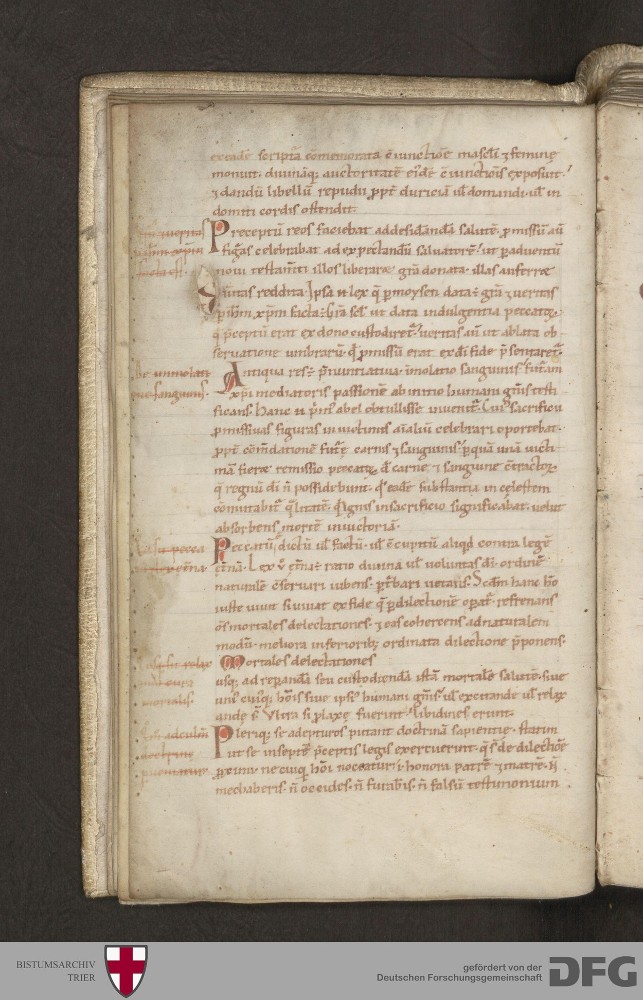 ex eadē scriptā comemorata ē iunctiōe mascłi ⁊ feminę
monuit. diuināq; auctoritatē eidē ē iunctiōis exposuit.
⁊ dandū libellū repudii ꝓpt̄ duriciā ul̄ domandi. ul̄ in
domiti cordis ostendit.
Preceptū reos faciebat ad desideranďā salutē. ꝓmissū aū
figuras celebrabat ad expectandū saluatorē. ut p̱ aduentū
noui testam̄ti illos liberaret grā donata. illas auferret
ueritas reddita. Ipsa ń lex q̄ p̱ moysen data. grā ⁊ ueritas
p̱ ihm̄ xp̄m facta. ut data indulgentia peccatoꝝ
q̄ p̄ceptū erat ex dono custodiret̄. ueritas aū ut ablata ob
seruatione umbrarū. q̄ ꝓmissū erat ex dī fide p̄sentaret̄.
Antiqua res p̄nuntiatiua. īmolatio sanguinis. futuram
xp̄i mediatoris passionē ab initio humani gn̄is testi
ficans. Hanc ń prim' abel obtulisse inuenit̄. Cui' sacrificii
ꝓmissiuas figuras in uictimis aīaliū celebrari oportebat.
ꝓpt̄ com̄dationē futurę carnis ⁊ sanguinis. p̱ quā unā uicti
mā fieret remissio peccatoꝝ de carne ⁊ sanguine ētractoꝝ.
q̄ regnū dī n̄ possidebunt. q̄ eadē substantia in cęlestem
comutabit̄ q̄litatē. q̄ ignis in sacrificio significabat. uelut
absorbens mortē in uictoriā.
Peccatū dictū ul̄ factū. ul̄ ēcupitū aliqd contra legē
ęt̄nā. Lex ū ęt̄na ratio diuina ul̄ uoluntas dī. ordinē
naturalē ēseruari iubens. p̱turbari uetans. Scdm hanc hō
iuste uiuit si uiuat ex fide q̄ p̱ dilectionē opat̄. refrenans
oms mortales delectationes. ⁊ eas cohercens ad naturalem
modū. meliora inferiorib; ordinata dilectione p̄ponens.
Mortales delectationes
usq; ad reparandā seu custodiendā istā mortalē salutē. siue
uni' cuiq; hōis siue ipsi' humani gn̄is. ul̄ excitande ul̄ relax
andę s̄. Vltra si ꝓlaxę fuerint. libidines erunt.
Plerīq; se adepturos putant doctrinā sapientię. statim
ut se in septē p̄ceptis legis exercuerint. q̄ s̄ de dilectiōe
ꝓximi. ne cuiq̄ hōi noceatur. i. honora patrē ⁊ matrē. N̄
mechaberis. n̄ occides. n̄ furabis. n̄ falsū testimonium
BISTUMSARCHIV
TRIER
gefördert von der
Deutschen Forschungsgemeinschaft
DFG